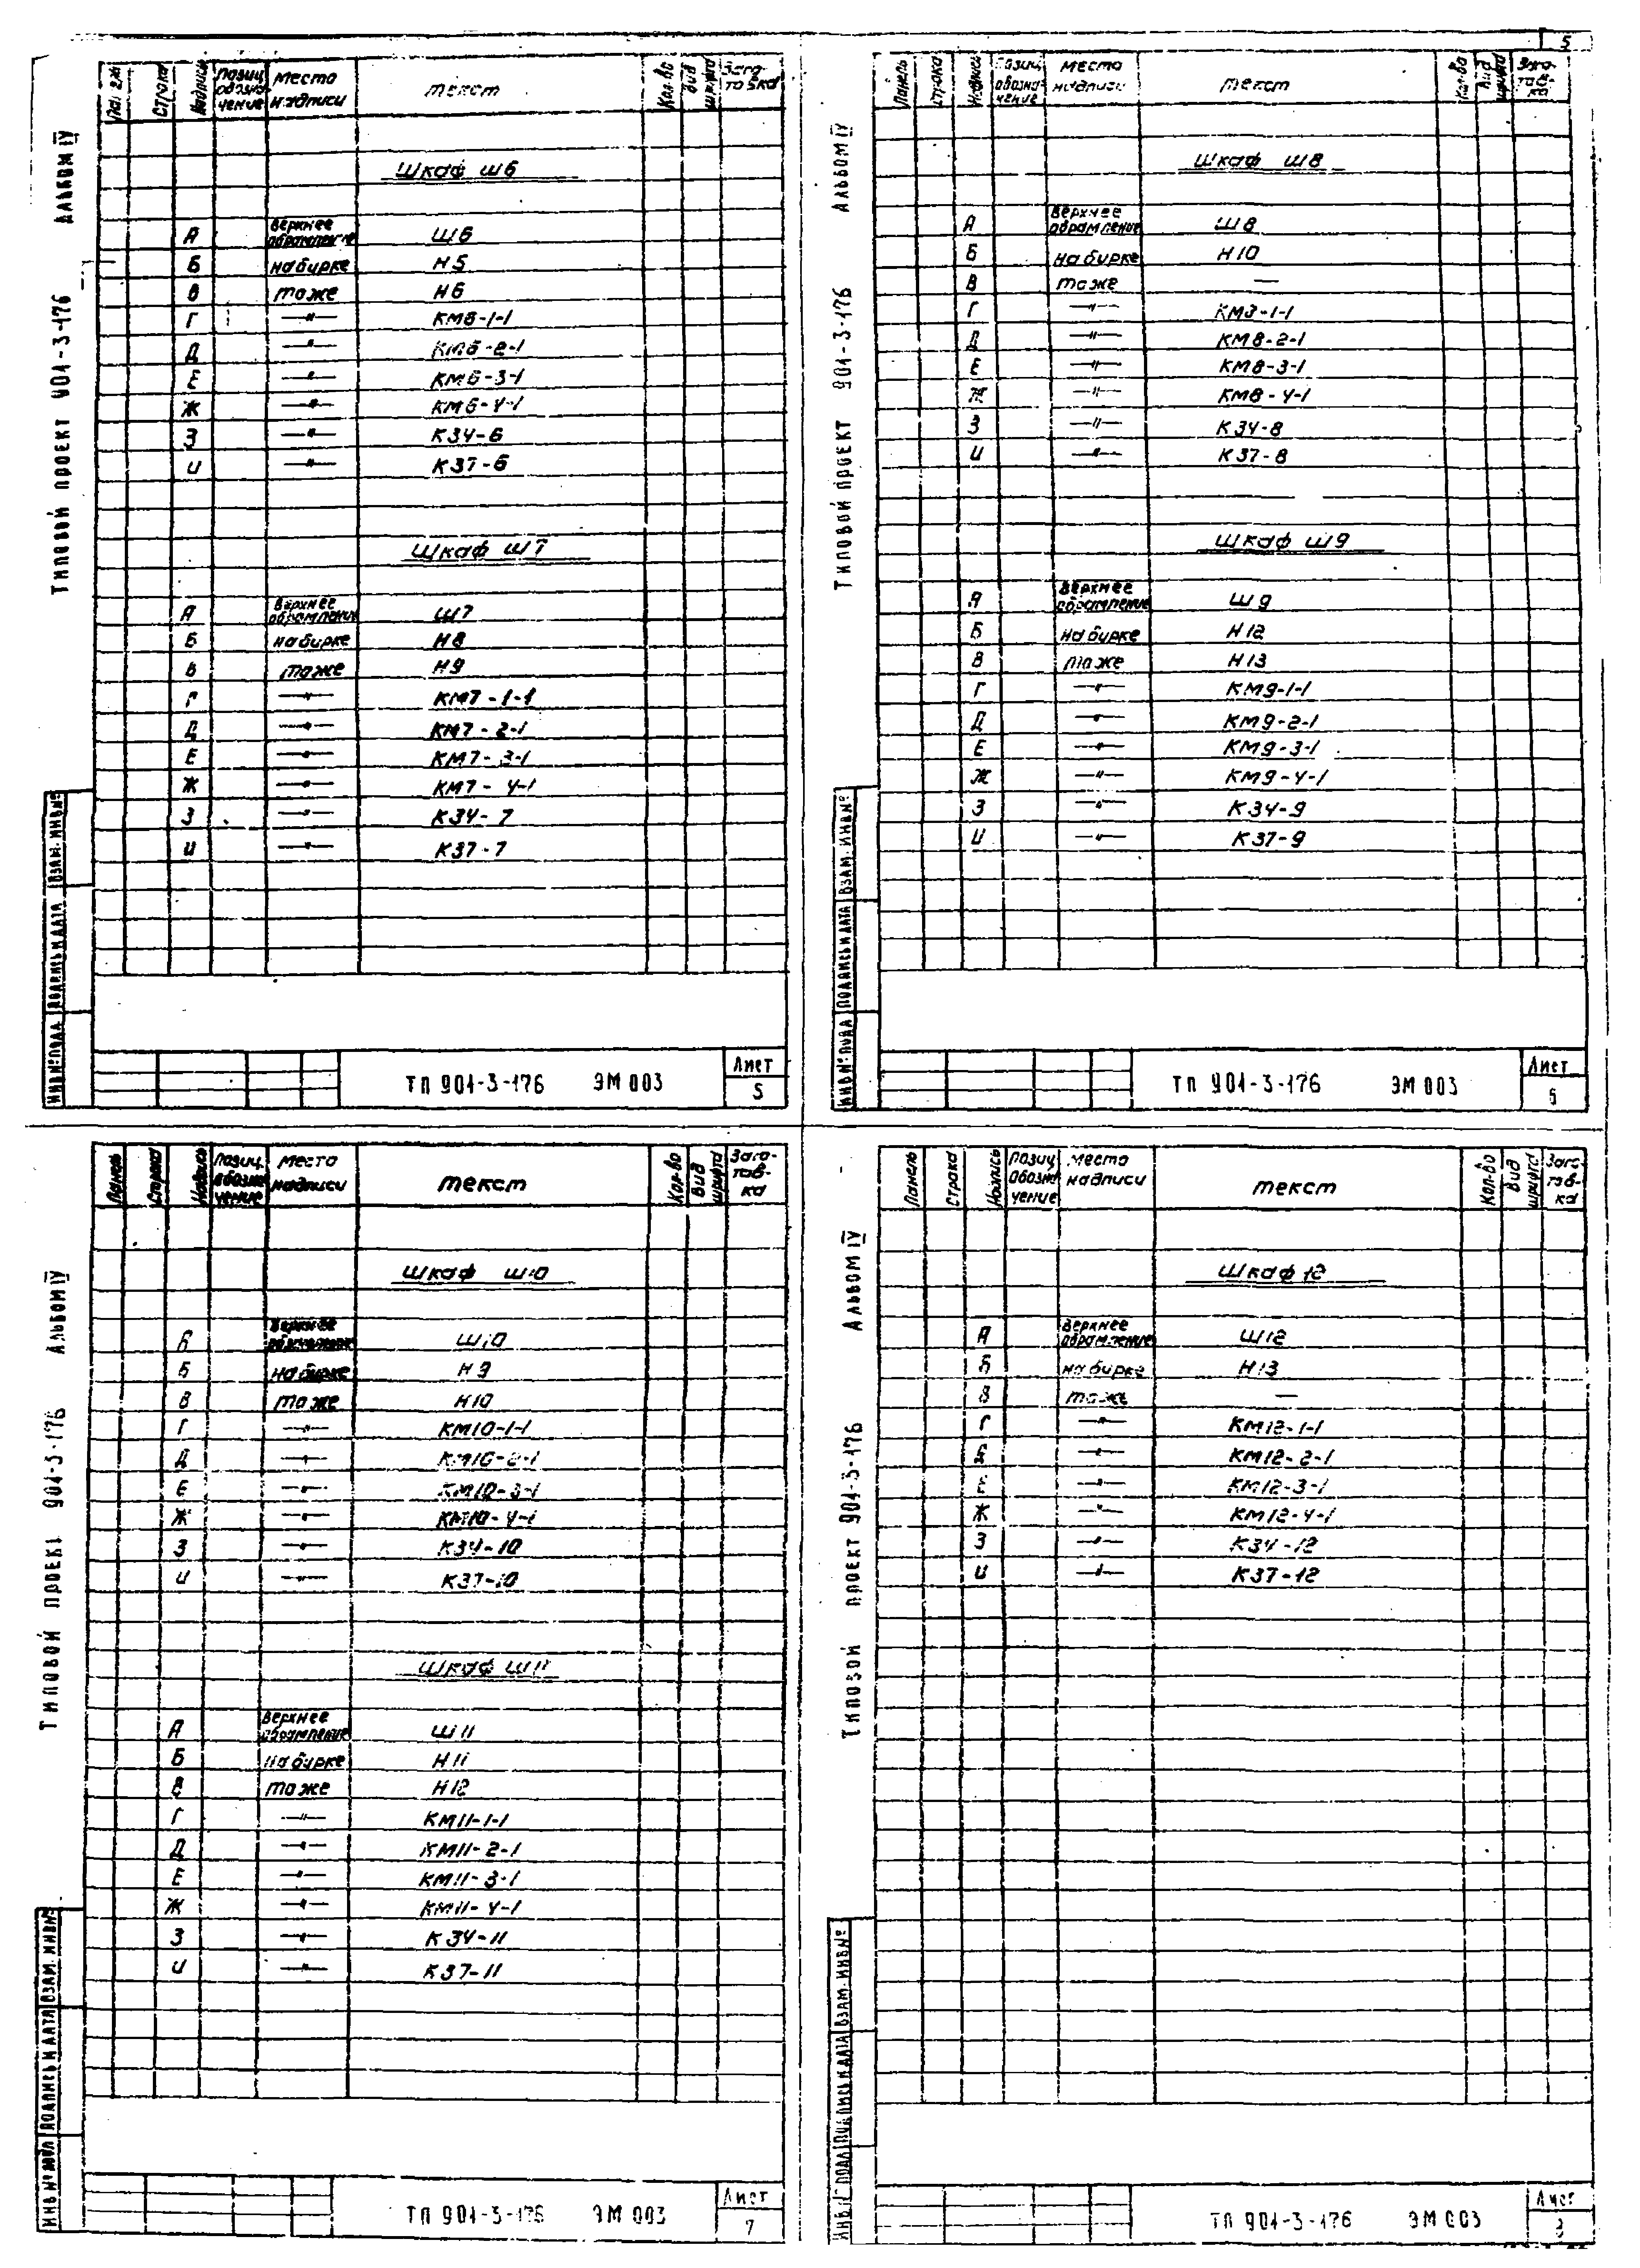 5
Строка Надпись Позиц. обозначение Место надписи Текст Кол-во Вид шрифта Заготовка
Шкаф Ш6
А Верхнее обрамление Ш6
Б на бирке Н5
В тоже Н6
Г —"— КМ6-1-1
Д —"— КМ6-2-1
Е —"— КМ6-3-1
Ж —"— КМ6-4-1
З —"— К34-6
И —"— К37-6
Шкаф Ш7
А Верхнее обрамление Ш7
Б на бирке Н8
В тоже Н9
Г —"— КМ7-1-1
Д —"— КМ7-2-1
Е —"— КМ7-3-1
Ж —"— КМ7-4-1
З —"— К34-7
И —"— К37-7
ТИПОВОЙ ПРОЕКТ 904-3-176 АЛЬБОМ IV
ИНВ.№ПОДЛ ПОДПИСЬ И ДАТА ВЗАМ. ИНВ№
ТП 904-3-176 ЭМ 003
Лист
5
Панель Строка Надпись Позиц. обозначение Место надписи Текст Кол-во Вид шрифта Заготовка
Шкаф Ш8
А Верхнее обрамление Ш8
Б на бирке Н10
В тоже —
Г —"— КМ8-1-1
Д —"— КМ8-2-1
Е —"— КМ8-3-1
Ж —"— КМ8-4-1
З —"— К34-8
И —"— К37-8
Шкаф Ш9
А Верхнее обрамление Ш9
Б на бирке Н12
В тоже Н13
Г —"— КМ9-1-1
Д —"— КМ9-2-1
Е —"— КМ9-3-1
Ж —"— КМ9-4-1
З —"— К34-9
И —"— К37-9
ТИПОВОЙ ПРОЕКТ 904-3-176 АЛЬБОМ IV
ИНВ№ПОДЛ ПОДПИСЬ И ДАТА ВЗАМ. ИНВ№
ТП 904-3-176 ЭМ 003
Лист
6
Панель Строка Надпись Позиц. обозначение Место надписи Текст Кол-во Вид шрифта Заготовка
Шкаф Ш10
А Верхнее обрамление Ш10
Б на бирке Н9
В тоже Н10
Г —"— КМ10-1-1
Д —"— КМ10-2-1
Е —"— КМ10-3-1
Ж —"— КМ10-4-1
З —"— К34-10
И —"— К37-10
Шкаф Ш11
А Верхнее обрамление Ш11
Б на бирке Н11
В тоже Н12
Г —"— КМ11-1-1
Д —"— КМ11-2-1
Е —"— КМ11-3-1
Ж —"— КМ11-4-1
З —"— К34-11
И —"— К37-11
ТИПОВОЙ ПРОЕКТ 904-3-176 АЛЬБОМ IV
ИНВ№ПОДЛ ПОДПИСЬ И ДАТА ВЗАМ. ИНВ№
ТП 904-3-176 ЭМ 003
Лист
7
Панель Строка Надпись Позиц. обозначение Место надписи Текст Кол-во Вид шрифта Заготовка
Шкаф 12
А Верхнее обрамление Ш12
Б на бирке Н13
В тоже —
Г —"— КМ12-1-1
Д —"— КМ12-2-1
Е —"— КМ12-3-1
Ж —"— КМ12-4-1
З —"— К34-12
И —"— К37-12
ТИПОВОЙ ПРОЕКТ 904-3-176 АЛЬБОМ IV
ИНВ№ПОДЛ ПОДПИСЬ И ДАТА ВЗАМ. ИНВ№
ТП 904-3-176 ЭМ 003
Лист